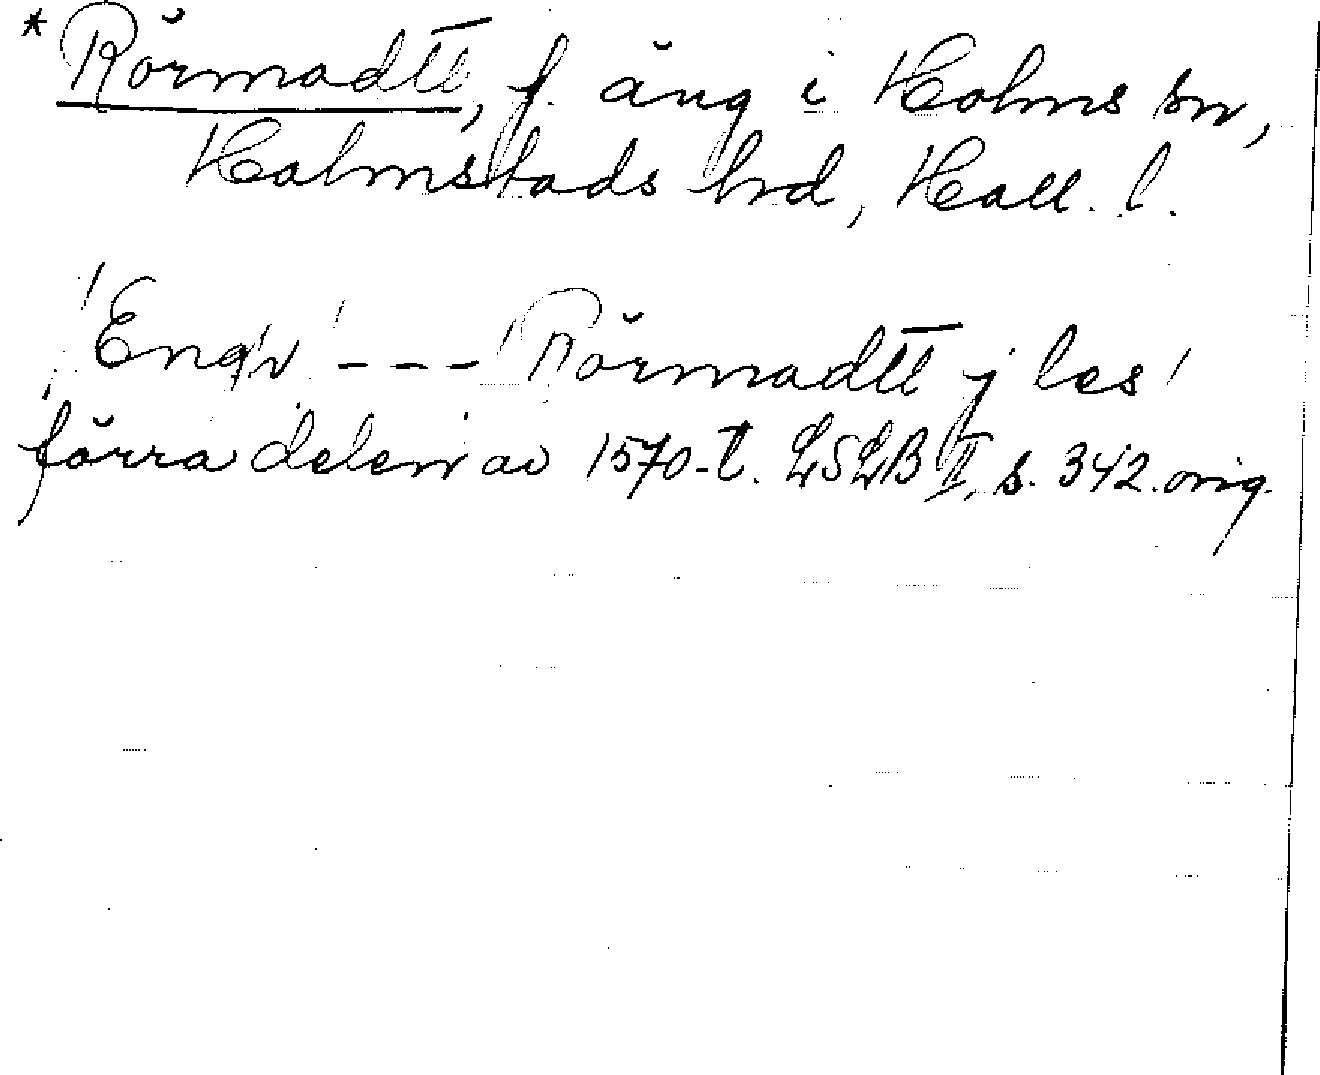 * Rörmadtt, f. äng i Holms sn,
Halmstads hrd, Hall. l.
'Eng'r' --- 'Rörmadtt j les'
förra delen av 1570-t. LSLB II, s. 342. orig.